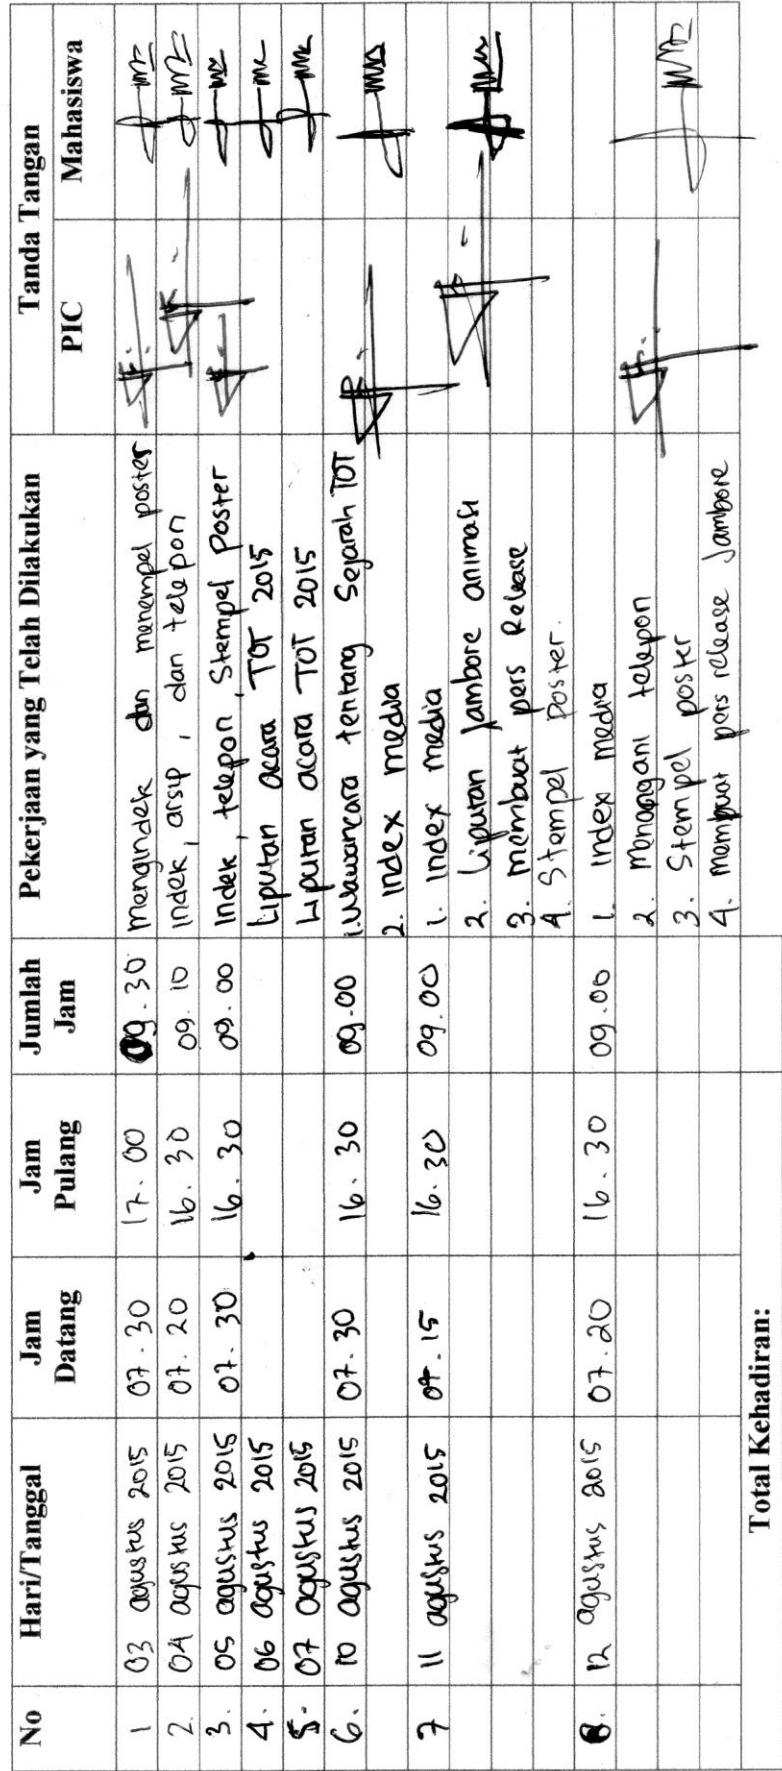 No Hari/Tanggal Jam Datang Jam Pulang Jumlah Jam Pekerjaan yang Telah Dilakukan Tanda Tangan
PIC Mahasiswa
1 03 agustus 2015 07.30 17.00 09.30 mengindek dan menempel poster
2. 04 agustus 2015 07.20 16.30 09.10 indek, arsip, dan telepon
3. 05 agustus 2015 07.30 16.30 09.00 Indek, telepon, Stempel poster
4. 06 agustus 2015 Liputan acara TOT 2015
5. 07 agustus 2015 Liputan acara TOT 2015
6. 10 agustus 2015 07.30 16.30 09.00 1. Wawancara tentang Sejarah TOT
2. Index media
7 11 agustus 2015 07.15 16.30 09.00 1. Index media
2. Liputan Jambore animasi
3. membuat pers Release
4. Stempel Poster.
8. 12 agustus 2015 07.20 16.30 09.00 1. Index media
2. Menangani telepon
3. Stempel poster
4. membuat pers release Jambore
Total Kehadiran: